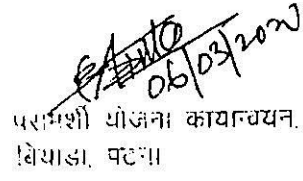 06/03/2020
परामर्शी योजना कार्यान्वयन.
बियाडा, पटना